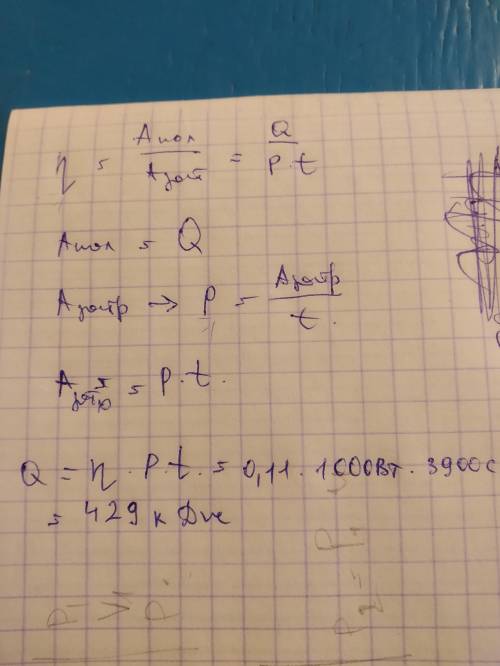 η = Aпол/Aзат = Q/P·t
Aпол = Q
Aзатр → P = Aзатр/t.
Aзатр = P·t.
Q = η · P · t. = 0,11 · 1000Вт · 3900с
= 429 кДж
P₁ V₁ P
P₂ = P₁